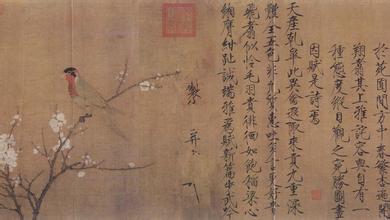 於苑囿間方中春繁杏遍開
翔翥其上雅詫容與自有一
種態度縱目觀之宛勝圖畫
因賦是詩焉
天產乾皋此異禽遐陬來貢九重深
體全五色非凡質惠吐多言更好音
飛翥似憐毛羽貴徘徊如飽稻粱心
緗膺紺趾誠端雅為賦新篇步武吟